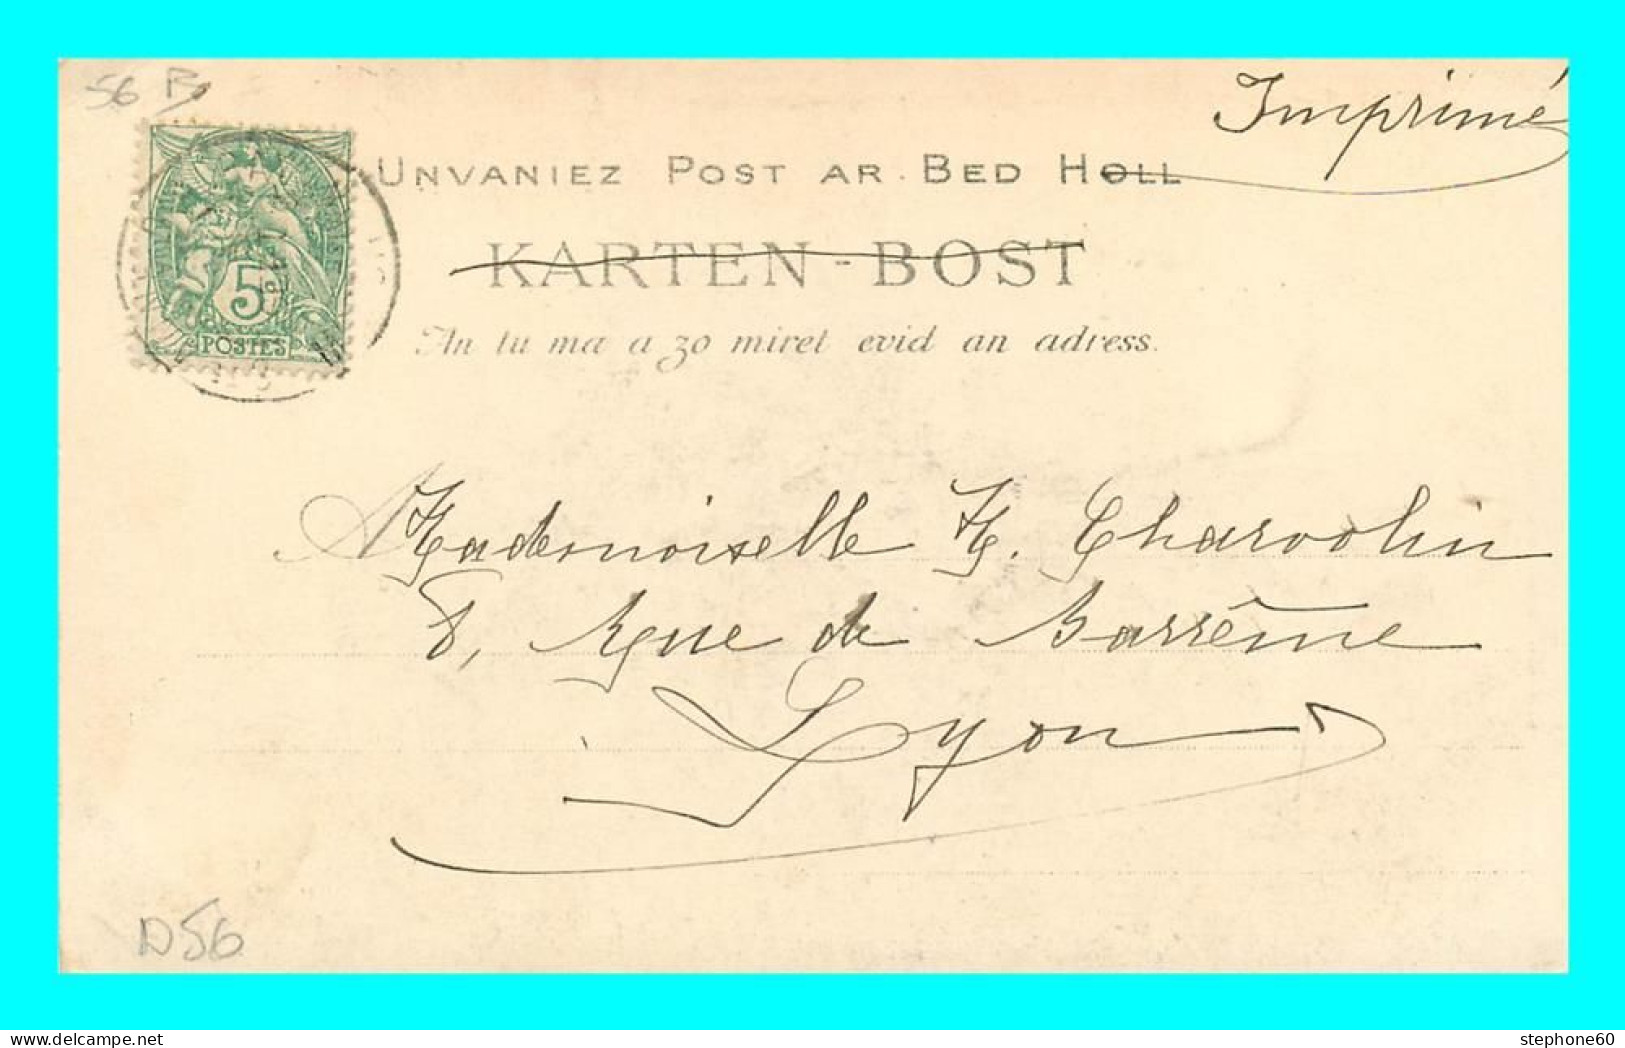 56
Imprimé
UNVANIEZ POST AR BED HOLL
KARTEN-BOST
An tu ma a zo miret evid an adress.
5
POSTES
Mademoiselle H. Charvolin
8, Rue de Barrême
Lyon
D56
D56
stephone60